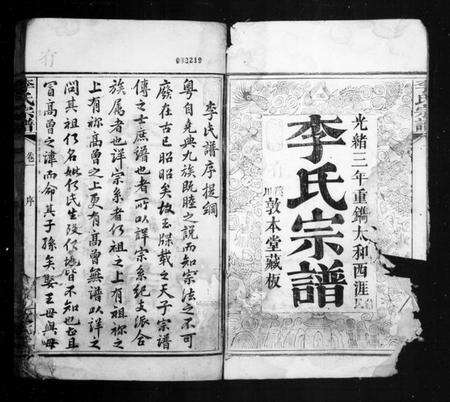 光緒三年重鐫太和西涯
李氏宗譜
敦本堂藏板
032219
李氏譜序提綱
粵自堯典九族既睦之說而知宗法之不可
廢在古已昭昭矣故玉牒載之天子宗譜
傳之士庶譜也者所以詳宗系紀支派合
族属者也詳宗系者何祖之上有祖祢之
上有祢高曾之上更有高曾無譜以詳之
問其祖何名妣何氏生歿何地皆不知也且
冒高曾之諱而命其子孫矣娶王母與母
李氏宗譜
卷
序
李氏宗譜